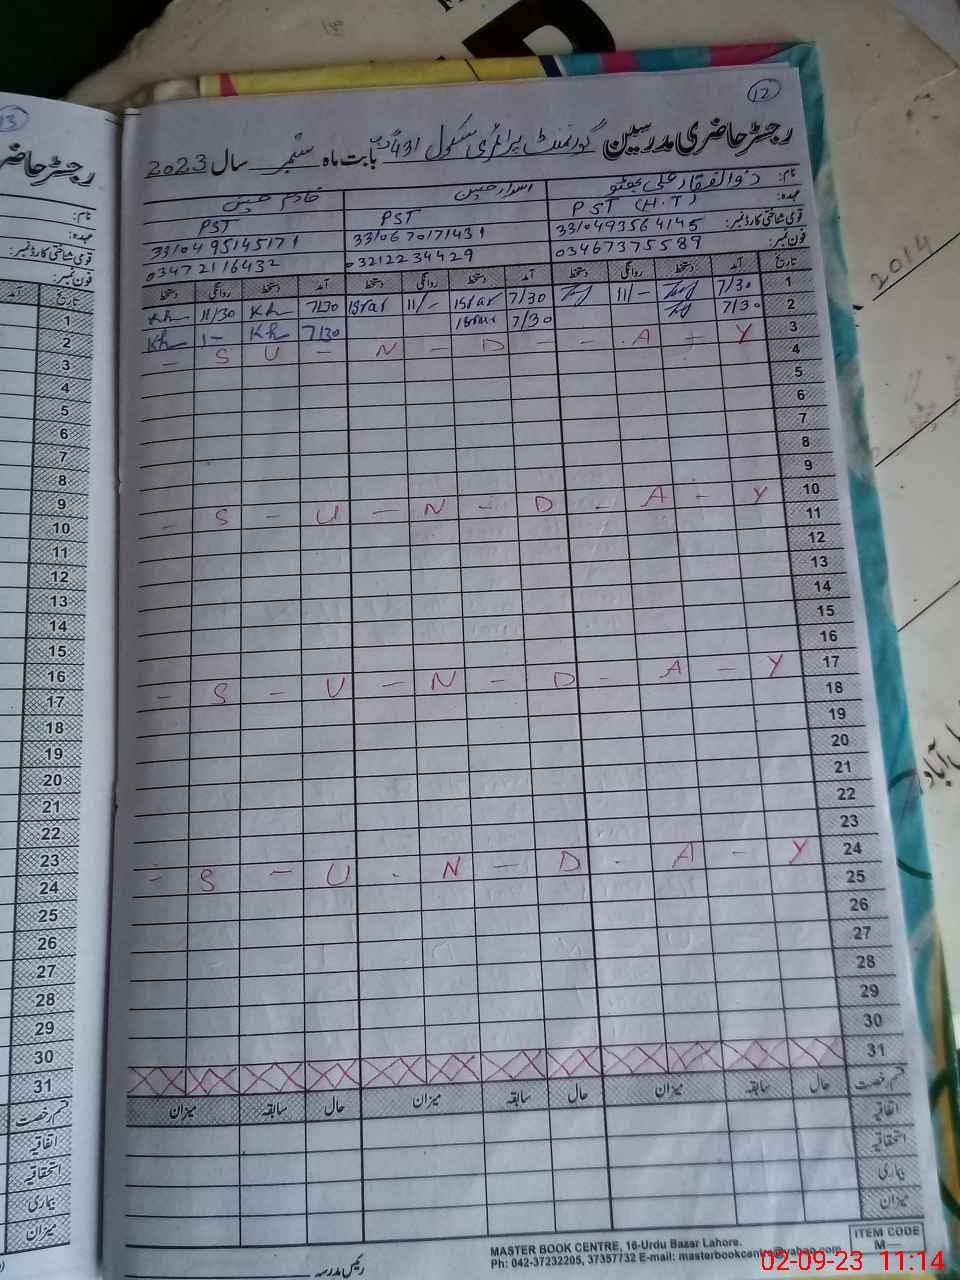 12
رجسٹر حاضری مدرسین گورنمنٹ پرائمری سکول 431 گ ب بابت ماہ ستمبر سال 2023
نام: ذوالفقار علی بھٹو اسرار حسین خادم حسین
عہدہ: PST (H.T) PST PST
قومی شناختی کارڈ نمبر: 3310493564145 3310670171431 3310495145171
فون نمبر: 03467375589 03212234429 03472116432
تاریخ آمد دستخط روانگی دستخط آمد دستخط روانگی دستخط آمد دستخط روانگی دستخط
1 7/30 11/- 7/30 Israr 11/- Israr 7/30 Kh 11/30 Kh
2 7/30 7/30 Israr 7/30 Kh 1- Kh
3 - S U - N - D - - A - Y
4
5
6
7
8
9
10 - S - U - N - D - A - Y
11
12
13
14
15
16
17 - S - U - N - D - A - Y
18
19
20
21
22
23
24 - S - U - N - D - A - Y
25
26
27
28
29
30
31
قسم رخصت حال سابقہ میزان حال سابقہ میزان حال سابقہ میزان
اتفاقیہ
استحقاقیہ
بیماری
میزان
رئیس مدرسہ
MASTER BOOK CENTRE, 16-Urdu Bazar Lahore.
Ph: 042-37232205, 37357732 E-mail: masterbookcentre@yahoo.com
ITEM CODE
M—
13
رجسٹر حاضر
نام:
عہدہ:
قومی شناختی کارڈ نمبر:
فون نمبر:
تاریخ آمد
1
2
3
4
5
6
7
8
9
10
11
12
13
14
15
16
17
18
19
20
21
22
23
24
25
26
27
28
29
30
31
قسم رخصت
اتفاقیہ
استحقاقیہ
بیماری
میزان
2014
02-09-23 11:14